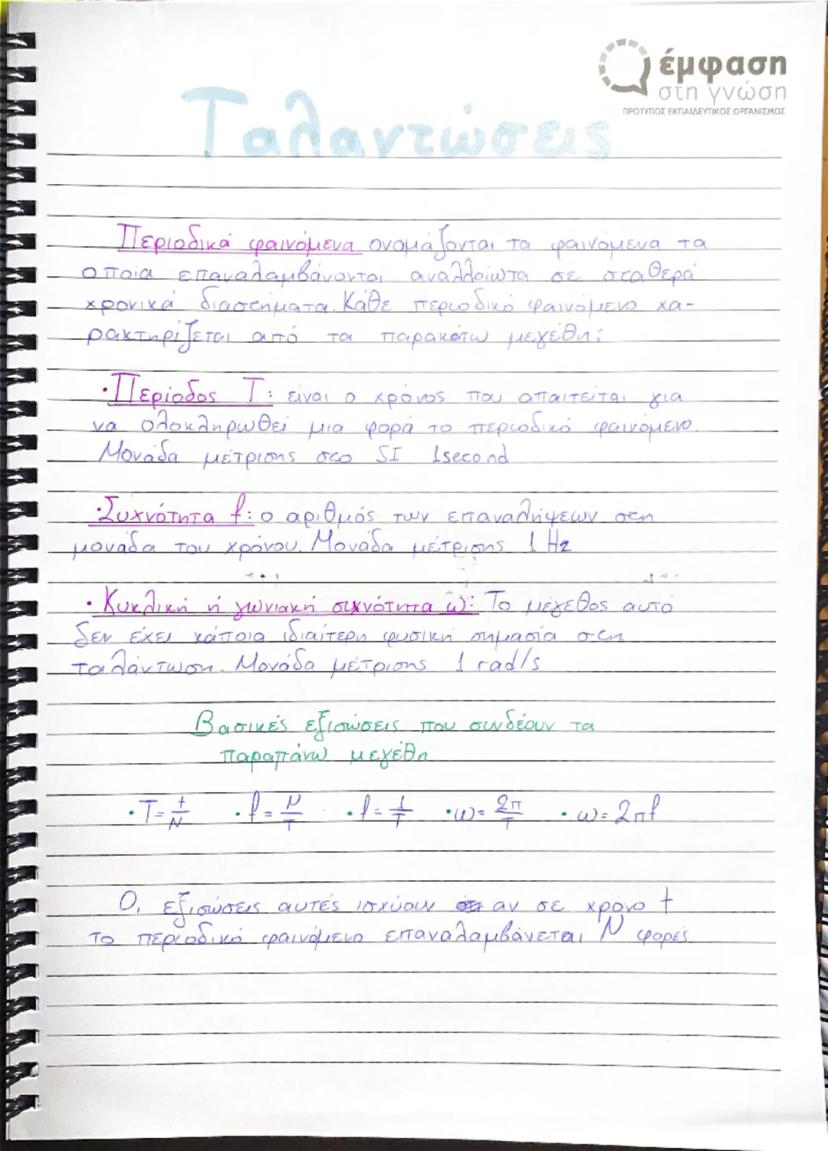 έμφαση
στη γνώση
ΠΡΟΤΥΠΟΣ ΕΚΠΑΙΔΕΥΤΙΚΟΣ ΟΡΓΑΝΙΣΜΟΣ
Ταλαντώσεις
Περιοδικά φαινόμενα ονομάζονται τα φαινόμενα τα
οποία επαναλαμβάνονται αναλλοίωτα σε σταθερά
χρονικά διαστήματα. Κάθε περιοδικό φαινόμενο χα-
ρακτηρίζεται από τα παρακάτω μεγέθη:
·Περίοδος T: είναι ο χρόνος που απαιτείται για
να ολοκληρωθεί μια φορά το περιοδικό φαινόμενο.
Μονάδα μέτρισης στο SI 1second
·Συχνότητα f: ο αριθμός των επαναλήψεων στη
μονάδα του χρόνου. Μονάδα μέτρισης 1 Hz
· Κυκλική ή γωνιακή συχνότητα ω: Το μέγεθος αυτό
δεν έχει κάποια ιδιαίτερη φυσική σημασία στη
ταλάντωση. Μονάδα μέτρισης 1 rad/s
Βασικές εξισώσεις που συνδέουν τα
παραπάνω μεγέθη
· T= t/N · f= N/T · f= 1/T · ω= 2π/T · ω= 2πf
Οι εξισώσεις αυτές ισχύουν αν σε χρόνο t
το περιοδικό φαινόμενο επαναλαμβάνεται N φορές